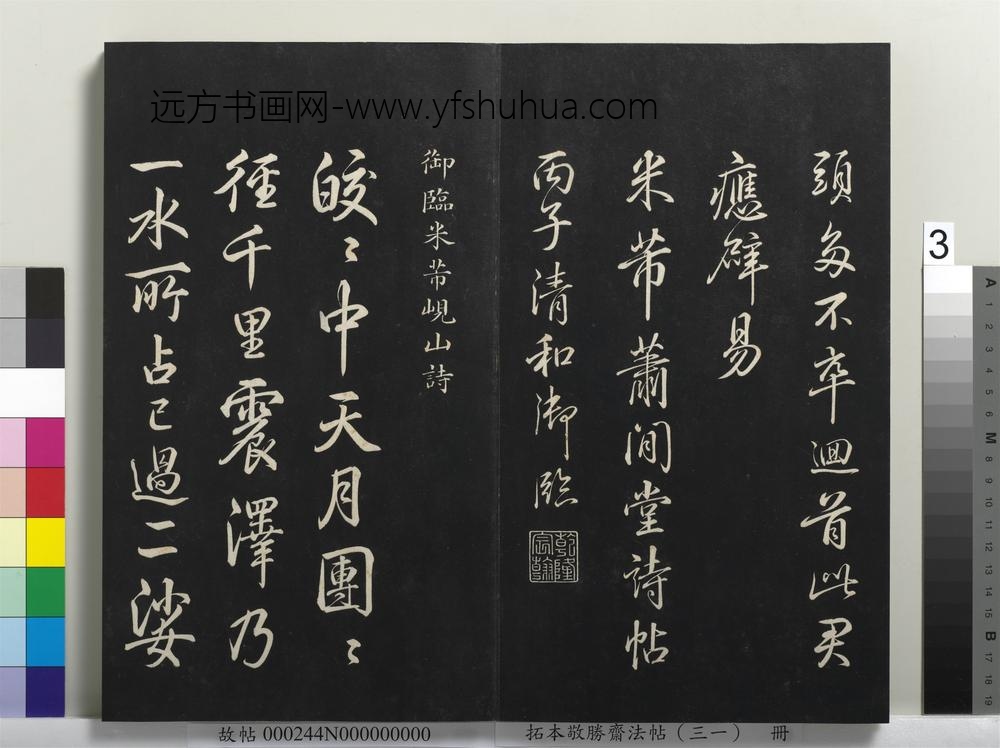 远方书画网-www.yfshuhua.com
頭多不卒迴首此君
應辟易
米芾蕭閒堂詩帖
丙子清和御臨
乾隆宸翰
御臨米芾峴山詩
皎〻中天月團〻
徑千里震澤乃
一水所占已過二娑
3
A 1 2 3 4 5 6 M 8 9 10 11 12 13 14 15 B 17 18 19
故帖 000244N000000000
拓本敬勝齋法帖（三一） 冊